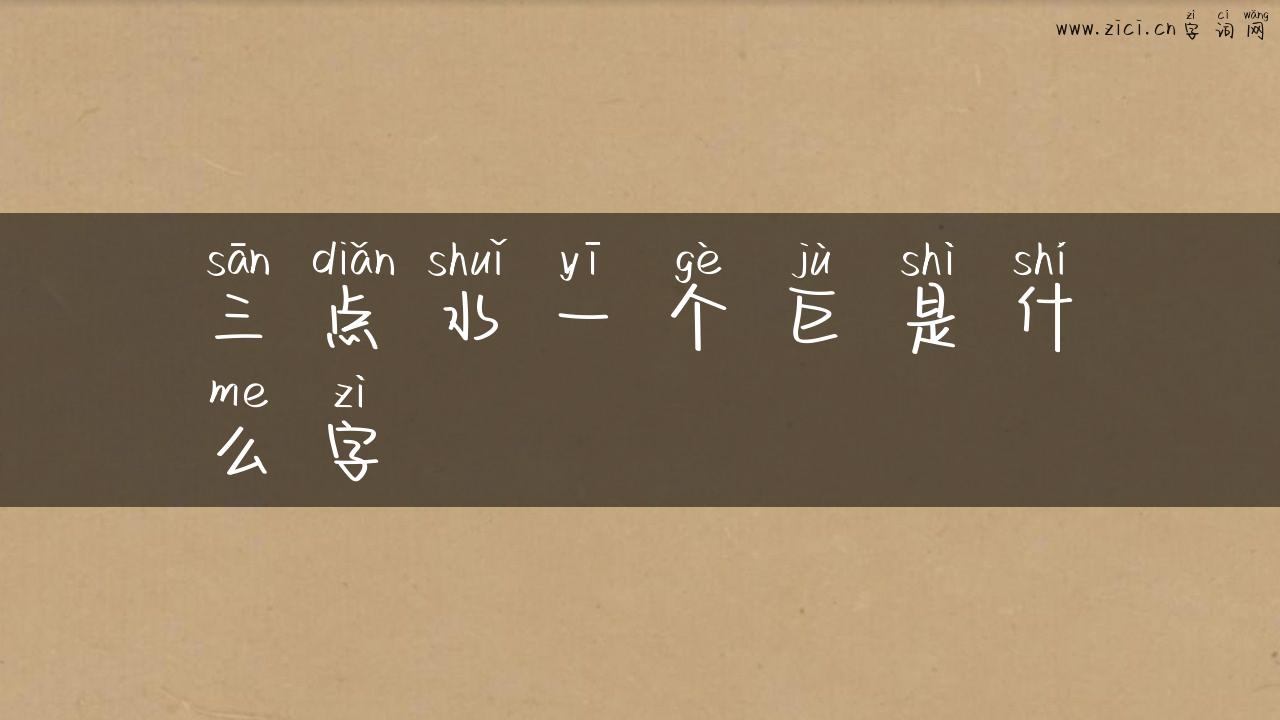 zì cí wǎng
www.zici.cn 字词网
sān diǎn shuǐ yī gè jù shì shí
三点水一个巨是什
me zì
么字